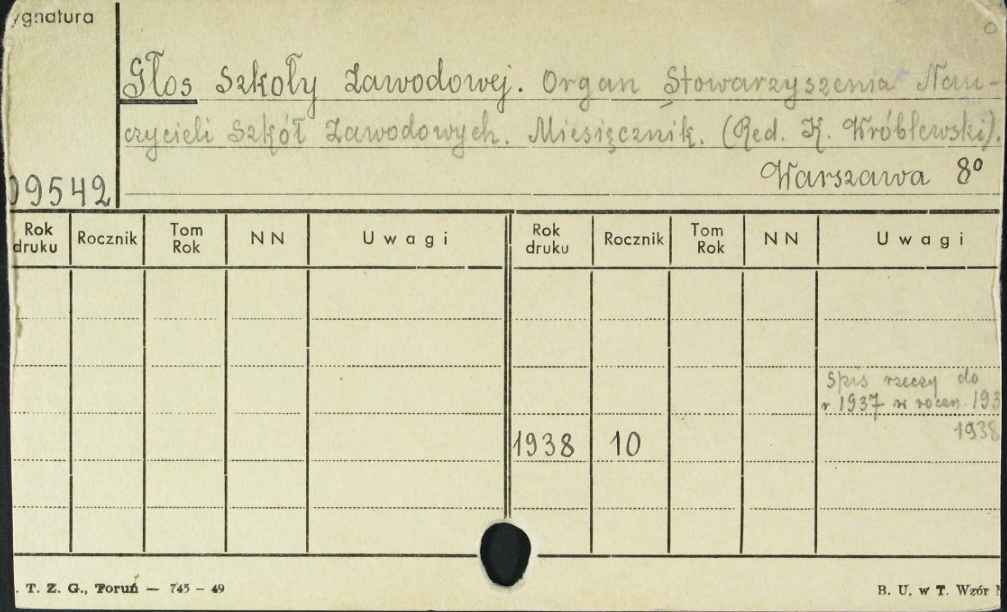 ygnatura
Głos Szkoły Zawodowej. Organ Stowarzyszenia Nau-
czycieli Szkół Zawodowych. Miesięcznik. (Red. K. Wróblewski).
Warszawa 8º
09542
Rok druku Rocznik Tom Rok N N Uwagi Rok druku Rocznik Tom Rok N N Uwagi
Spis rzeczy do
r 1937 w roczn. 193
1938
1938 10
. T. Z. G., Toruń — 745 – 49
B. U. w T. Wzór